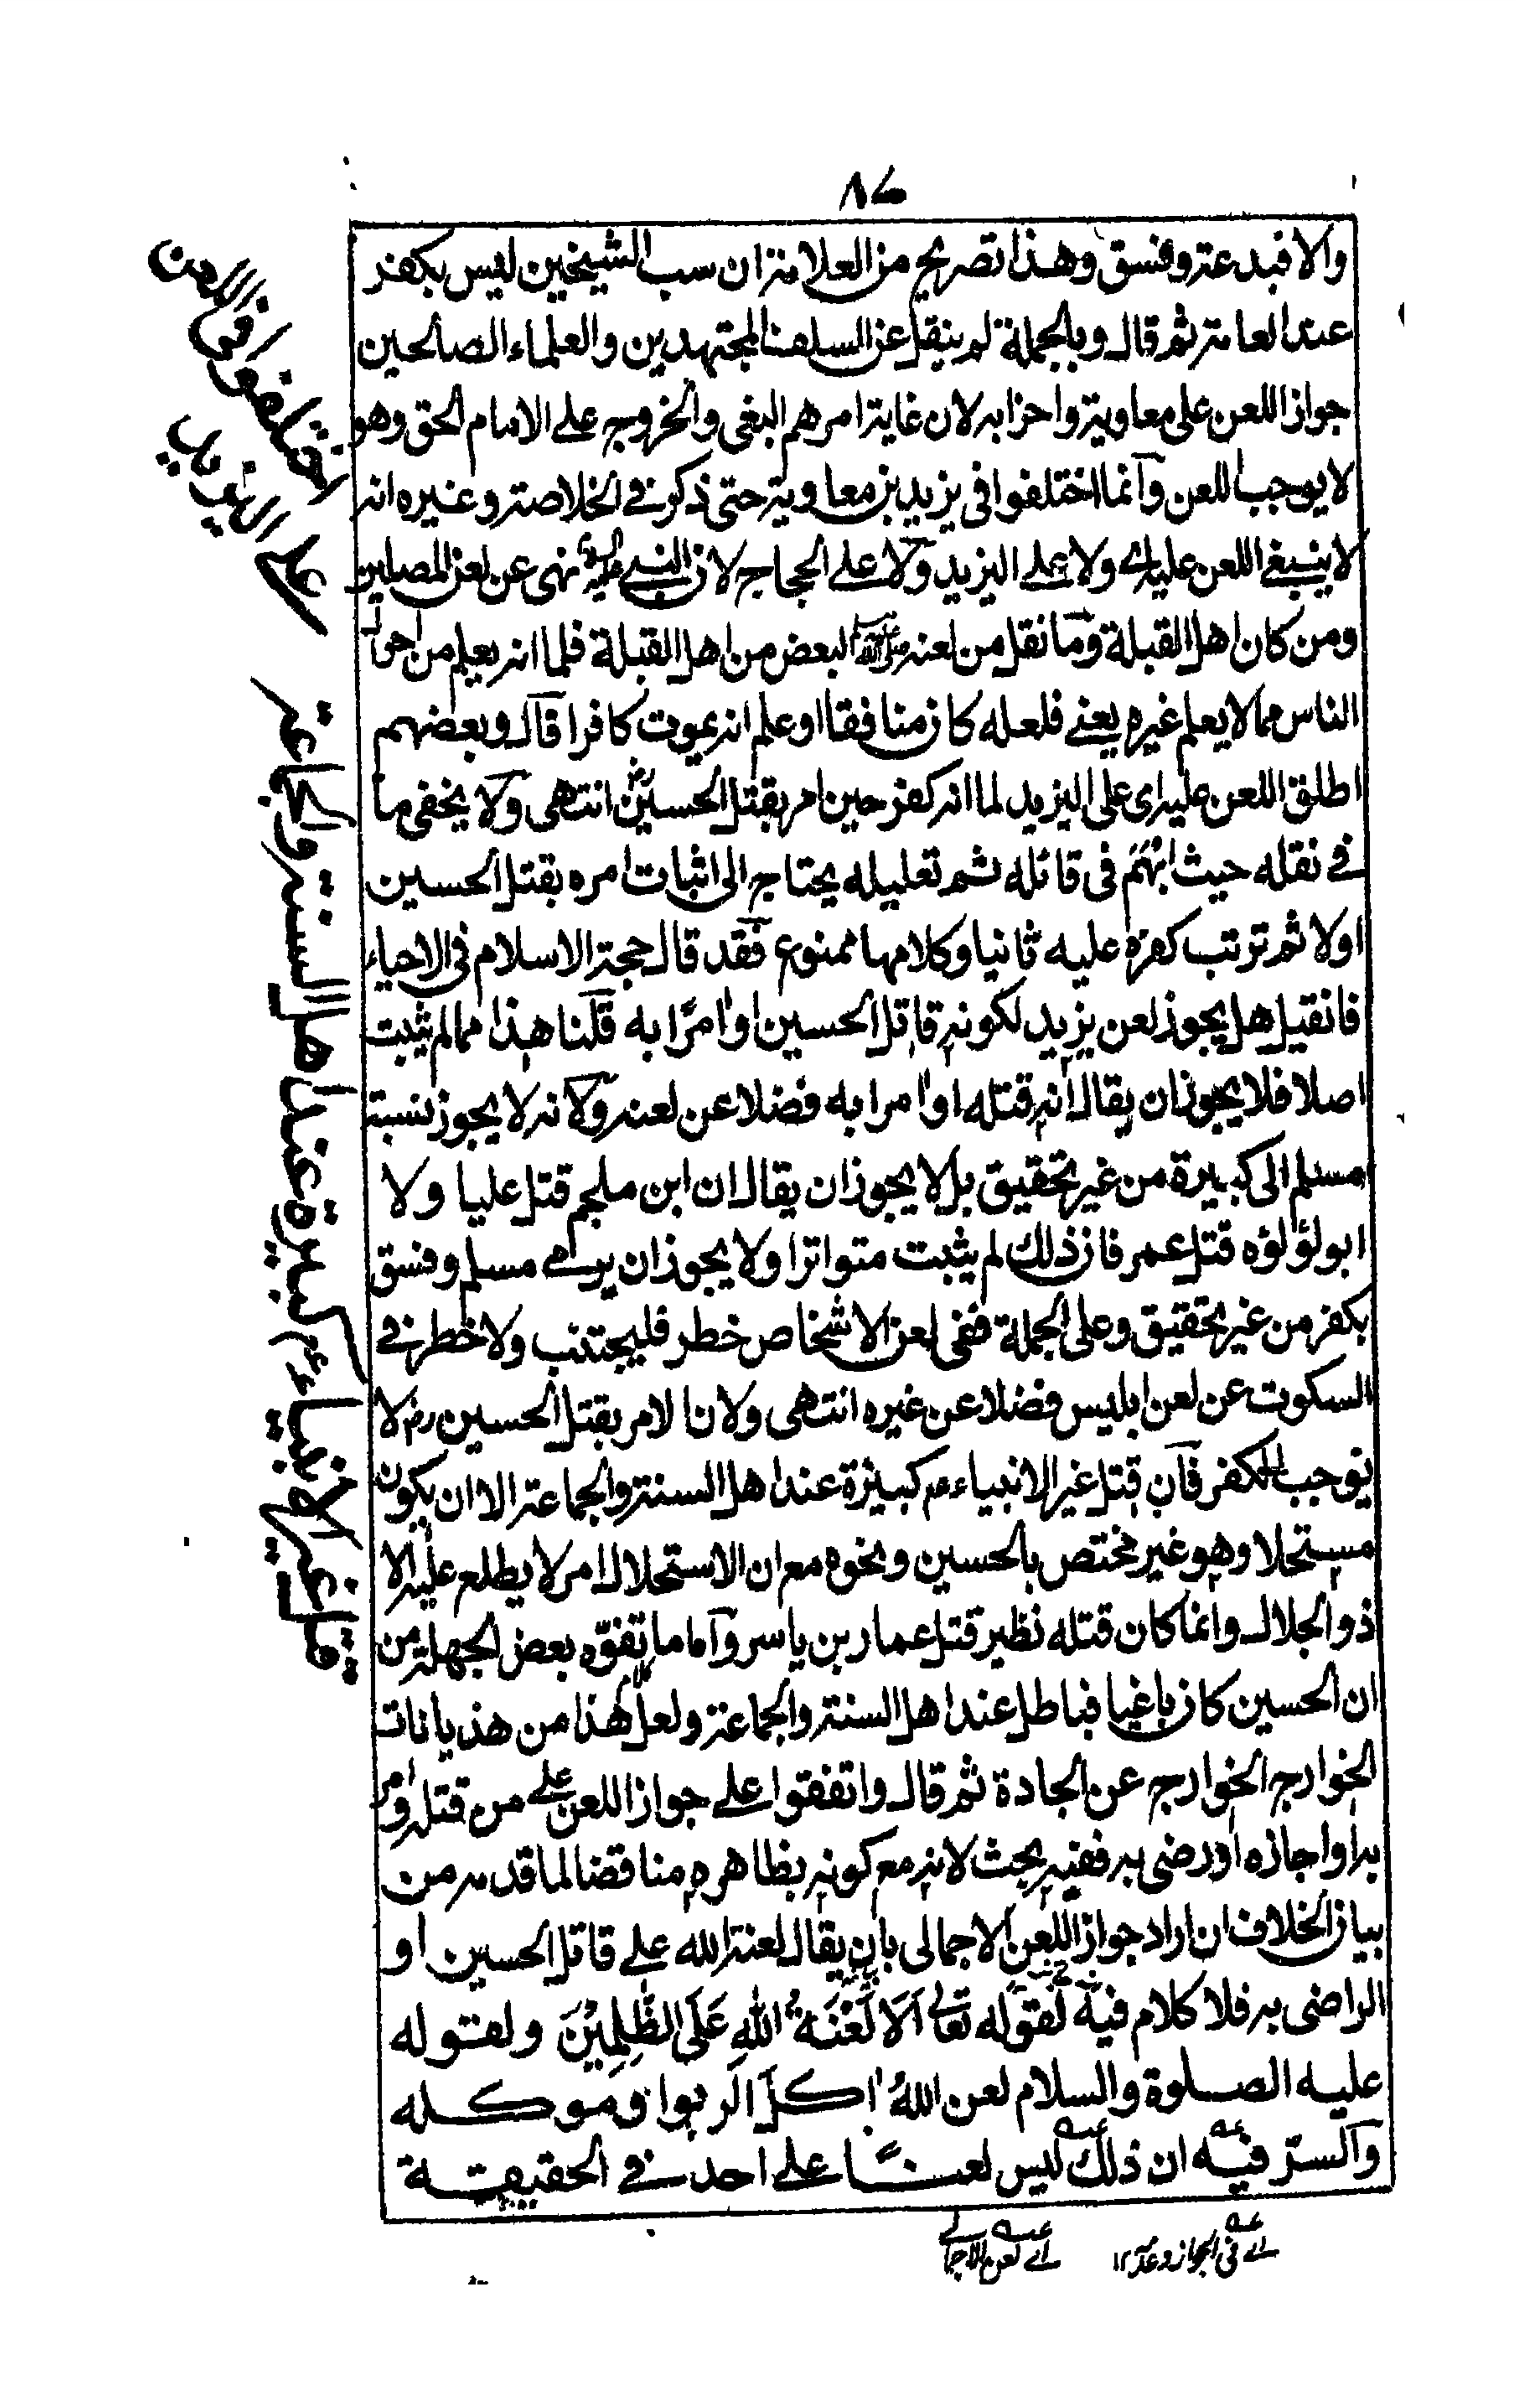 ٨٧
والا فبدعة وفسق وهذا تصريح من العلامة ان سب الشيخين ليس بكفر
عند العامة ثم قال وبالجملة لم ينقل عن السلف المجتهدين والعلماء الصالحين
جواز اللعن على معاوية واحزابه لان غاية امرهم البغى والخروج على الامام الحق وهو
لا يوجب اللعن وانما اختلفوا فى يزيد بن معاوية حتى ذكر فى الخلاصة وغيره انه
لا ينبغى اللعن عليه اى ولا على اليزيد ولا على الحجاج لان النبى عليه السلام نهى عن لعن المصلين
ومن كان اهل القبلة وما نقل من لعنه صلى الله عليه وسلم البعض من اهل القبلة فلما انه يعلم من احوال
الناس مما لا يعلم غيره يعنى فلعله كان منافقا او علم انه يموت كافرا قال وبعضهم
اطلق اللعن عليه اى على اليزيد لما انه كفر حين امر بقتل الحسين رض انتهى ولا يخفى ما
فى نقله حيث ابهم فى قائله ثم تعليله يحتاج الى اثبات امره بقتل الحسين
اولا ثم ترتب كفره عليه ثانيا وكلامهما ممنوع فقد قال حجة الاسلام فى الاحياء
فان قيل هل يجوز لعن يزيد لكونه قاتل الحسين او امرا به قلنا هذا مما لم يثبت
اصلا فلا يجوز ان يقال انه قتله او امرا به فضلا عن لعنه ولانه لا يجوز نسبة
مسلم الى كبيرة من غير تحقيق بل لا يجوز ان يقال ان ابن ملجم قتل عليا ولا
ابو لؤلؤه قتل عمر فان ذلك لم يثبت متواترا ولا يجوز ان يرمى مسلم وفسق
بكفر من غير تحقيق وعلى الجملة ففى لعن الاشخاص خطر فليجتنب ولا خطر فى
السكوت عن لعن ابليس فضلا عن غيره انتهى ولان الامر بقتل الحسين رض لا
يوجب الكفر فان قتل غير الانبياء عم كبيرة عند اهل السنة والجماعة الا ان يكون
مستحلا وهو غير مختص بالحسين ونحوه مع ان الاستحلال امر لا يطلع عليه الا
ذو الجلال وانما كان قتله نظير قتل عمار بن ياسر واما ما تفوه بعض الجهلة من
ان الحسين كان باغيا فباطل عند اهل السنة والجماعة ولعل هذا من هذيانات
الخوارج الخوارج عن الجادة ثم قال واتفقوا على جواز اللعن على من قتله وامر
به او اجازه او رضى به ففيه بحث لانه مع كونه بظاهره مناقضا لما قدمه من
بيان الخلاف ان اراد جواز اللعن الاجمالى بان يقال لعنة الله على قاتل الحسين او
الراضى به فلا كلام فيه لقوله تعالى اَلَا لَعْنَةُ اللّٰهِ عَلَى الظّٰلِمِيْنَ ولقوله
عليه الصلوة والسلام لعن اللهُ اكل الربوا وموكله
والسرّ فيه ان ذلك ليس لعنًا على احد فى الحقيقة
اى فى الجواز وعدمه ١٢
اى لعن الاجمالى
اختلفوا فى اللعن
على اليزيد
قتل غير الانبياء عم كبيرة عند اهل السنة والجماعة